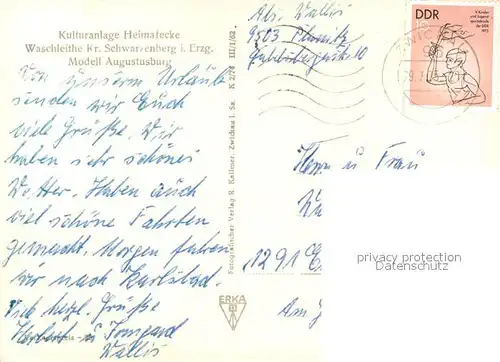 Kulturanlage Heimatecke
Waschleithe Kr. Schwarzenberg i. Erzg.
Modell Augustusburg
Von unserem Urlaube
senden wir Euch
viele Grüße. Wir
haben sehr schönes
Wetter. Haben auch
viel schöne Fahrten
gemacht. Morgen fahren
wir nach Karlsbad.
Viele herzl. Grüße
Herbert u Irmgard
Wallis
Fotografischer Verlag R. Kallmer, Zwickau i. Sa. K 2/74 III/1/62
ERKA
Abs. Wallis
9503 Planitz
10
DDR
1975
Herrn u Frau
1291
Am
privacy protection
Datenschutz